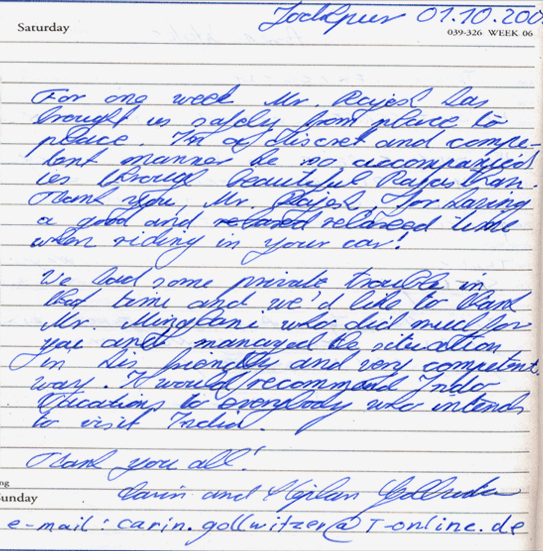 Jodhpur 01.10.200
Saturday
039-326 WEEK 06
For one week Mr. Rajesh has
brought us safely from place to
place. In a discret and compe-
tent manner he accompanied
us through beautiful Rajasthan.
Thank you, Mr. Rajesh, for having
a good and relaxed time
when riding in your car!
We had some private trouble in
that time and we'd like to thank
Mr. who did much for
you and managed the situation
in his friendly and very competent
way. I would recommend Indo
Vacations to everybody who intends
to visit India.
Thank you all!
Carin and Stephan Gollwitzer
unday
e-mail: carin.gollwitzer@T-online.de